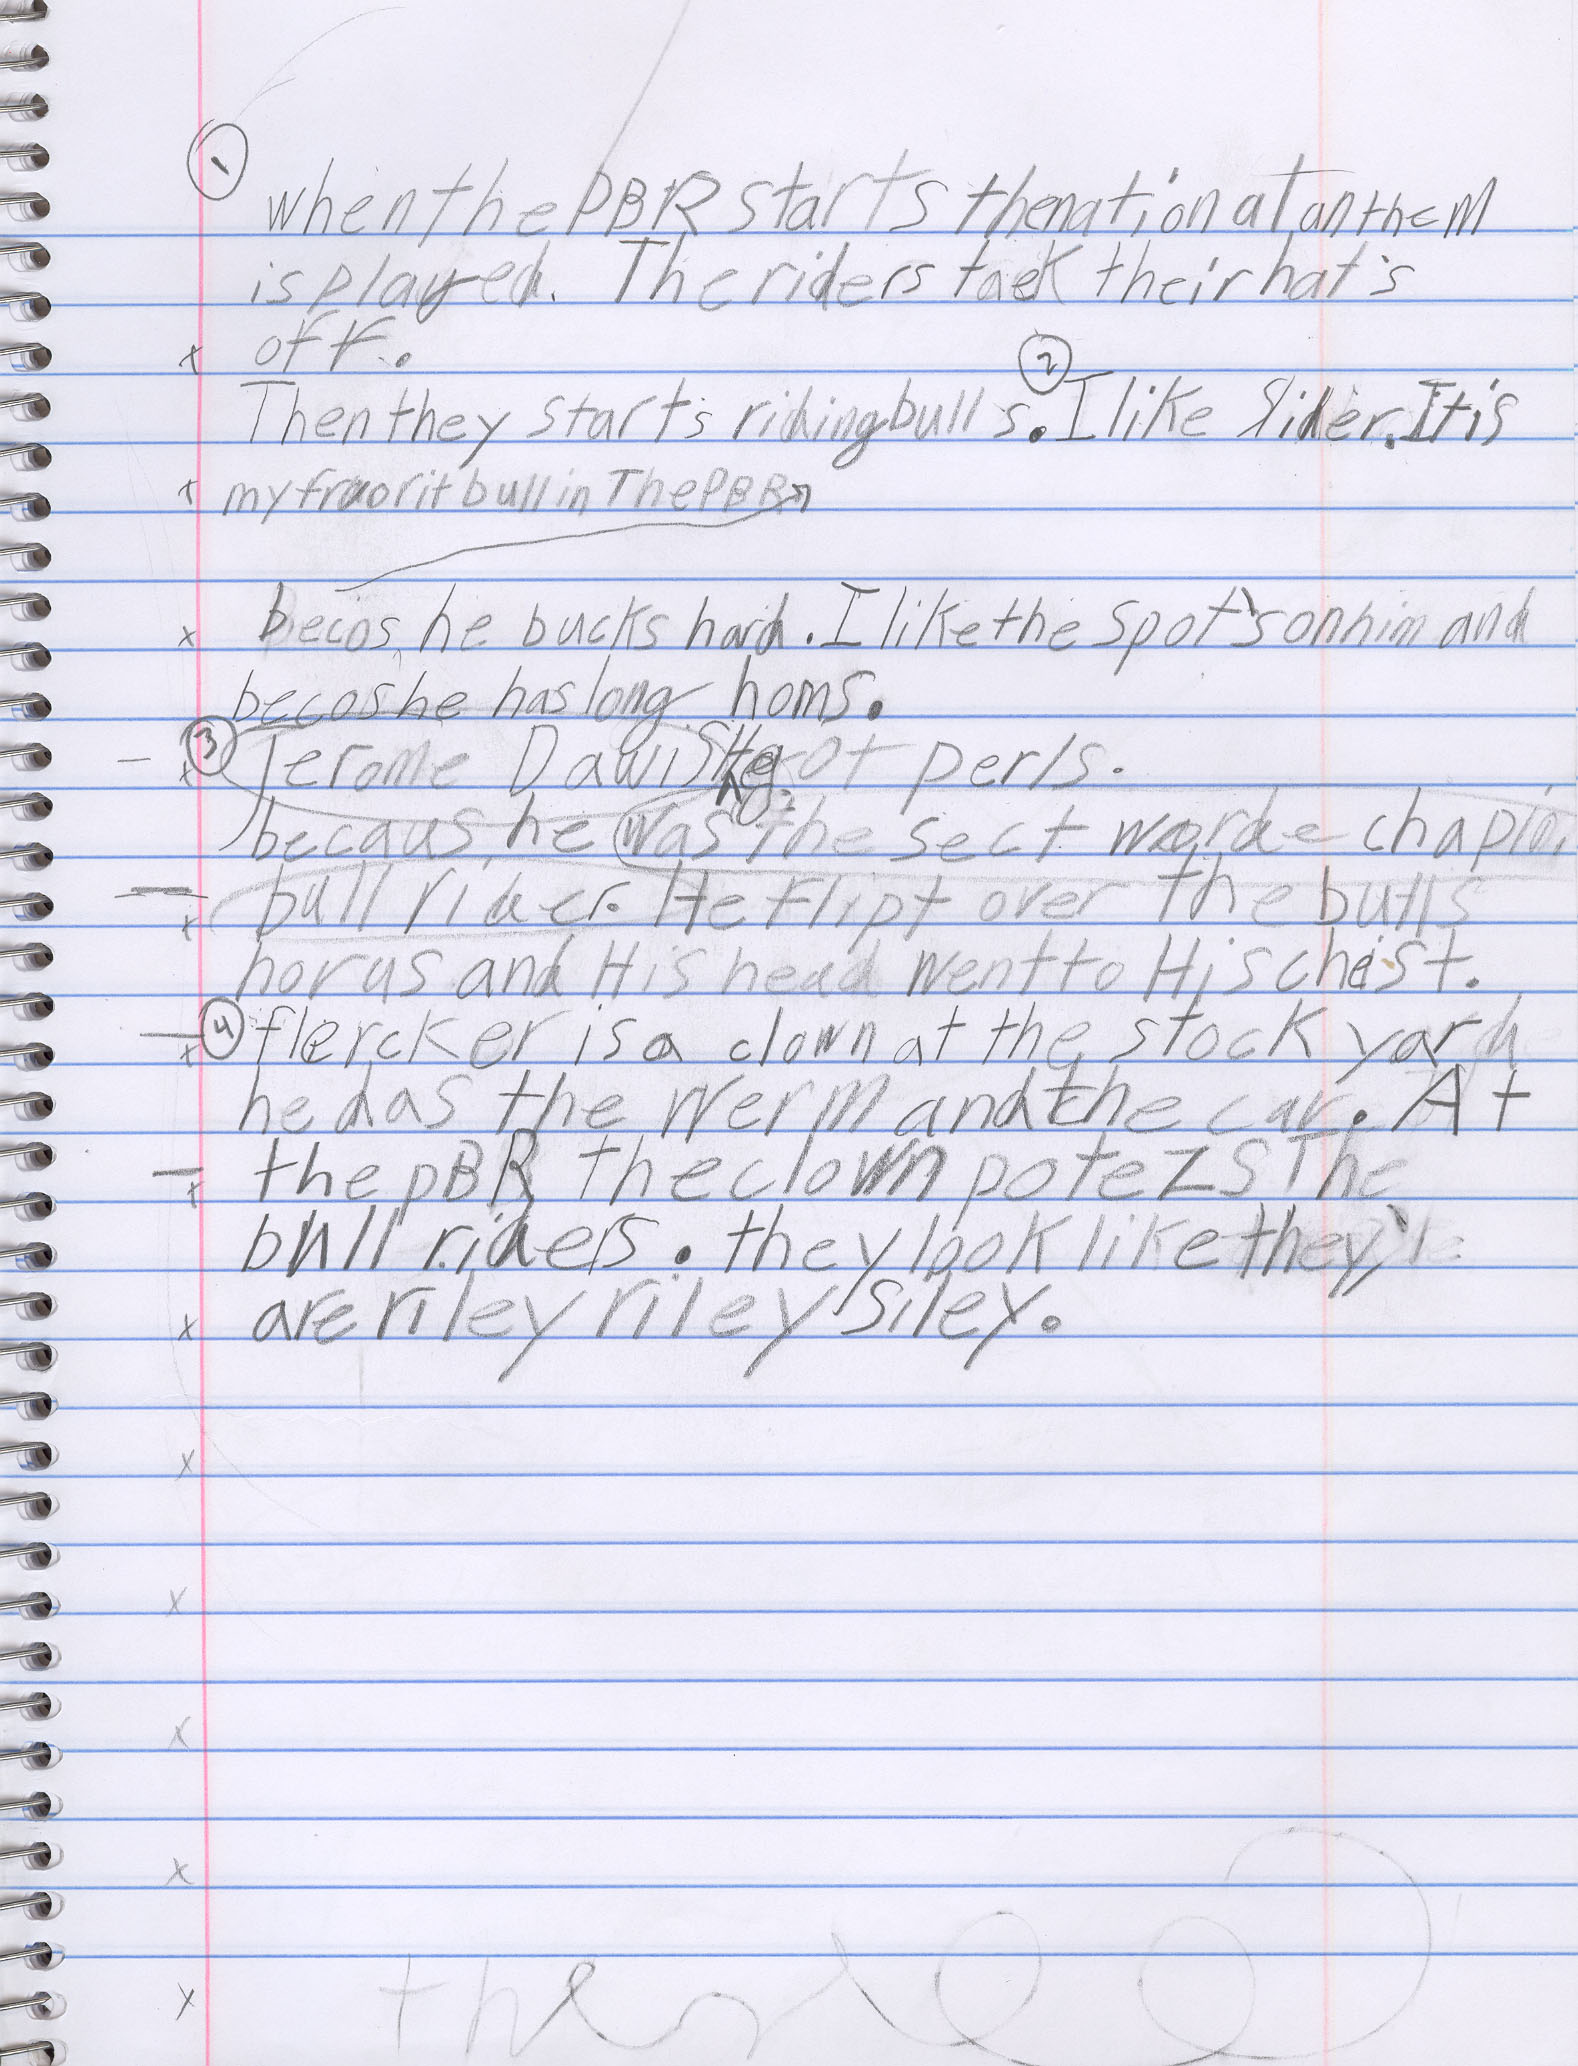 1
when the PBR starts the national anthem
is played. The riders taek their hat's
off.
Then they starts riding bulls. 2 I like Slider. It is
my fraorit bull in The PBR
becos, he bucks hard. I like the spot's on him and
becos he has long horns.
3 Jerome Dawis He got perls.
becaus, he was the sect worde chapioi
bull rider. He flipt over the bulls
horus and His head went to His chest.
4 flercker is a clown at the stock yard
he das the werm and the car. At
the pBR the clown potezs The
bull riders. they look like they
are riley riley siley.
the